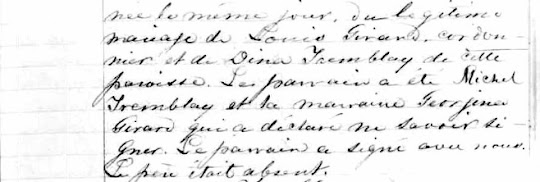 née le même jour, du légitime
mariage de Louis Girard, cordon-
nier et de Dina Tremblay de cette
paroisse. Le parrain a été Michel
Tremblay et la marraine Georgina
Girard qui a déclaré ne savoir si-
gner. Le parrain a signé avec nous.
Le père était absent.